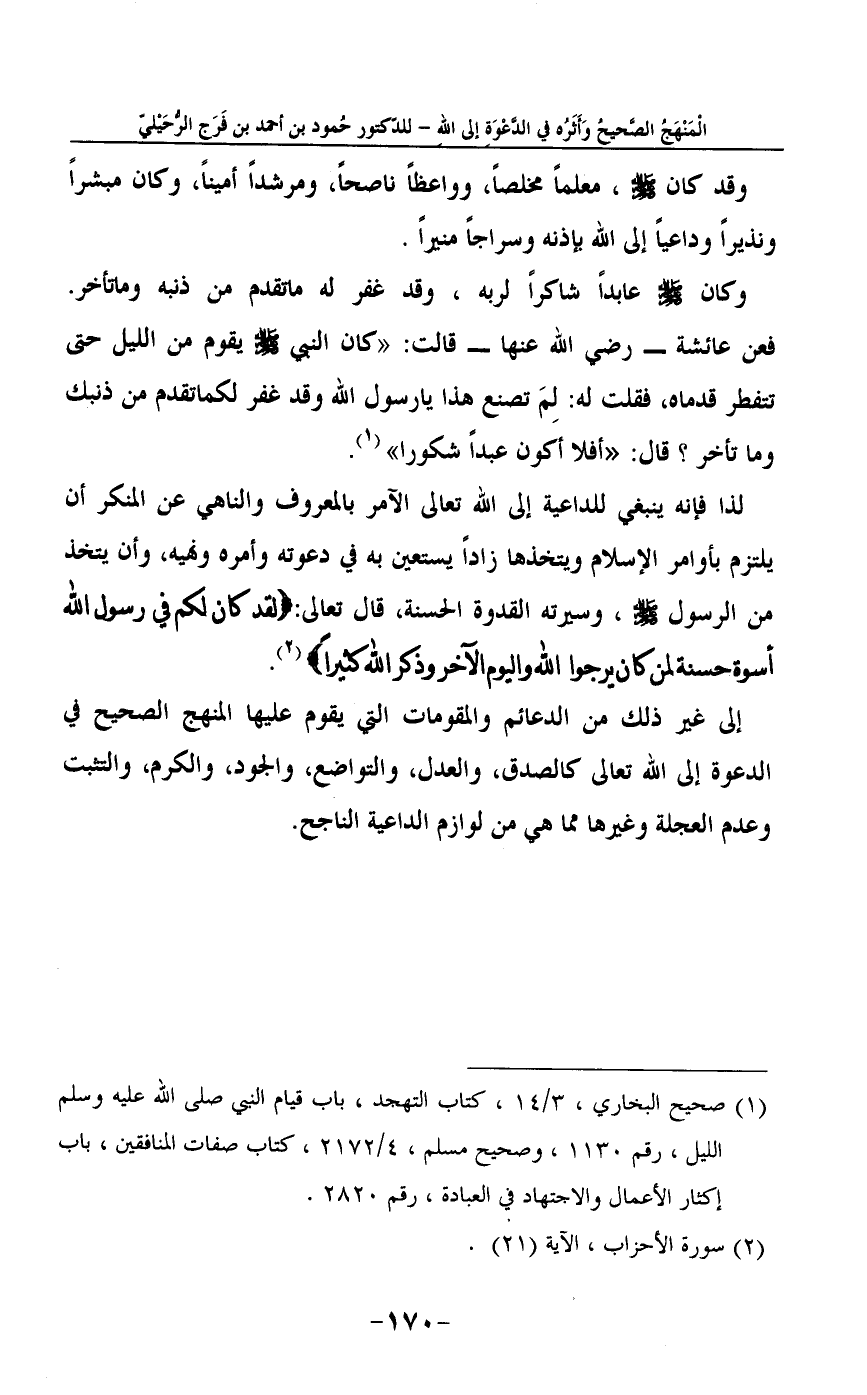 الْمَنْهَجُ الصَّحيحُ وَأَثَرُه في الدَّعْوَةِ إلى اللهِ – للدّكتور حُمود بن أحمد بن فَرَج الرُّحَيْليّ
وقد كان ﷺ ، معلماً مخلصاً، وواعظاً ناصحاً، ومرشداً أميناً، وكان مبشراً
ونذيراً وداعياً إلى الله بإذنه وسراجاً منيراً .
وكان ﷺ عابداً شاكراً لربه ، وقد غفر له ماتقدم من ذنبه وماتأخر.
فعن عائشة ــ رضي الله عنها ــ قالت: «كان النبي ﷺ يقوم من الليل حتى
تتفطر قدماه، فقلت له: لِمَ تصنع هذا يارسول الله وقد غفر لكماتقدم من ذنبك
وما تأخر ؟ قال: «أفلا أكون عبداً شكورا» (١).
لذا فإنه ينبغي للداعية إلى الله تعالى الآمر بالمعروف والناهي عن المنكر أن
يلتزم بأوامر الإسلام ويتخذها زاداً يستعين به في دعوته وأمره ونهيه، وأن يتخذ
من الرسول ﷺ ، وسيرته القدوة الحسنة، قال تعالى: ﴿لقد كان لكم في رسول الله
أسوة حسنة لمن كان يرجوا الله واليوم الآخر وذكر الله كثيراً﴾ (٢).
إلى غير ذلك من الدعائم والمقومات التي يقوم عليها المنهج الصحيح في
الدعوة إلى الله تعالى كالصدق، والعدل، والتواضع، والجود، والكرم، والتثبت
وعدم العجلة وغيرها مما هي من لوازم الداعية الناجح.
(١) صحيح البخاري ، ١٤/٣ ، كتاب التهجد ، باب قيام النبي صلى الله عليه وسلم
الليل ، رقم ١١٣٠ ، وصحيح مسلم ، ٢١٧٢/٤ ، كتاب صفات المنافقين ، باب
إكثار الأعمال والاجتهاد في العبادة ، رقم ٢٨٢٠ .
(٢) سورة الأحزاب ، الآية (٢١) .
-١٧٠-